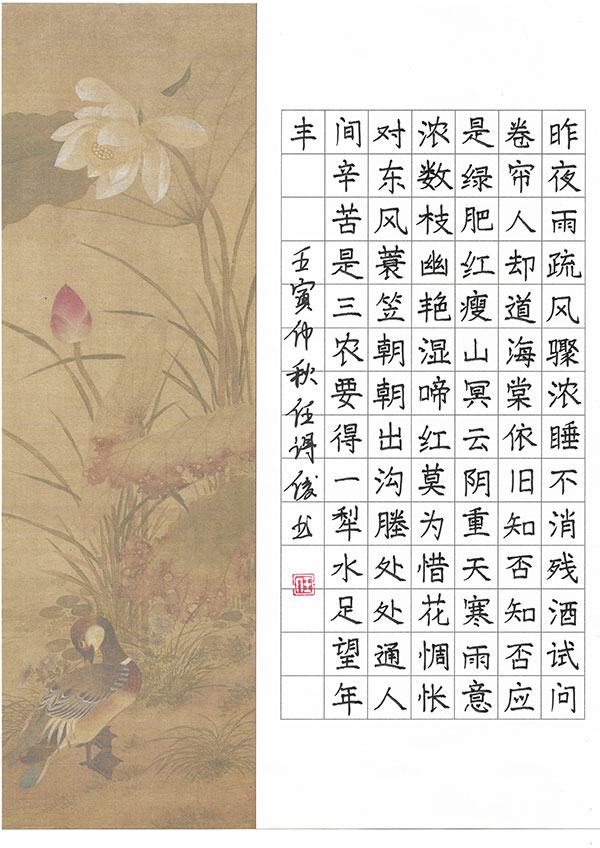 昨夜雨疏风骤浓睡不消残酒试问
卷帘人却道海棠依旧知否知否应
是绿肥红瘦山冥云阴重天寒雨意
浓数枝幽艳湿啼红莫为惜花惆怅
对东风蓑笠朝朝出沟塍处处通人
间辛苦是三农要得一犁水足望年
丰
壬寅仲秋任得俊书